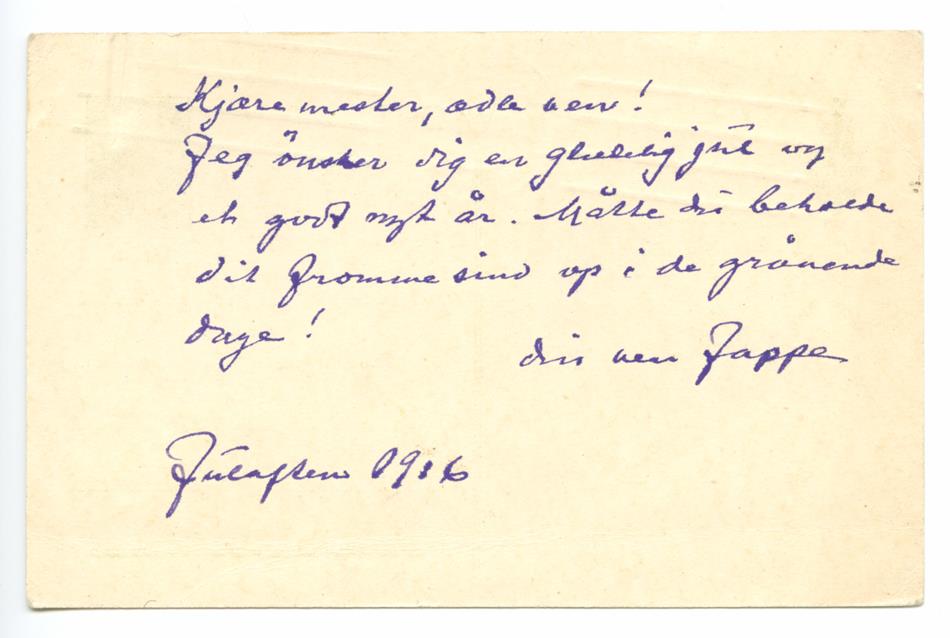 Kjære mester, ædle ven!
Jeg önsker dig en glædelig jul og
et godt nyt år. Måtte du beholde
dit fromme sind op i de grånende
dage!
din ven Jappe
Julaften 1916